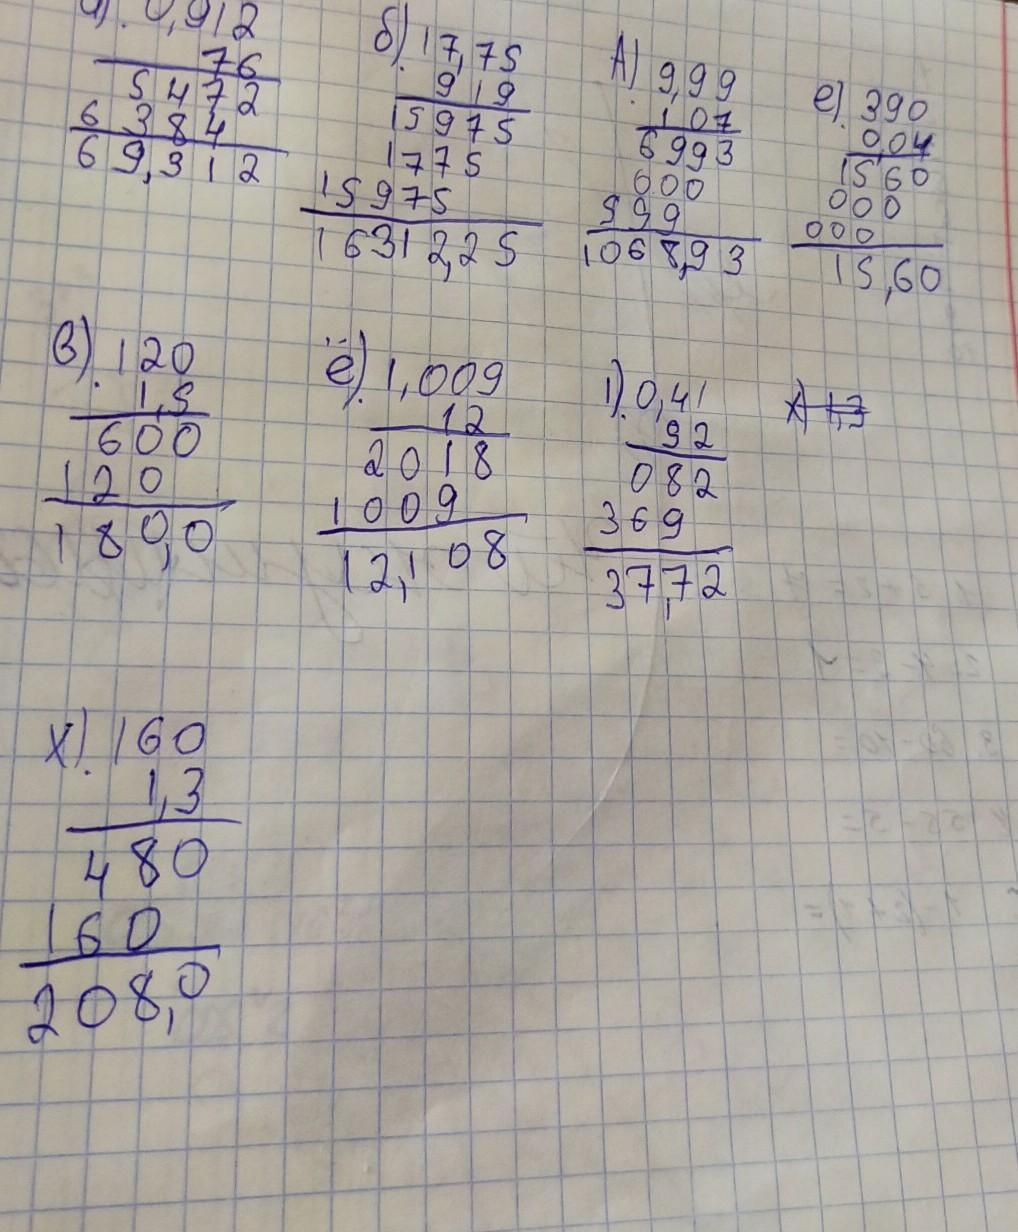 а). 0,912
76
5472
6384
69,312
б). 17,75
919
15975
1775
15975
16312,25
Д). 9,99
107
6993
000
999
1068,93
е). 390
0,04
1560
000
000
15,60
в). 120
1,5
600
120
180,0
ё). 1,009
12
2018
1009
12,108
1). 0,41
92
082
369
37,72
х). 160
1,3
480
160
208,0